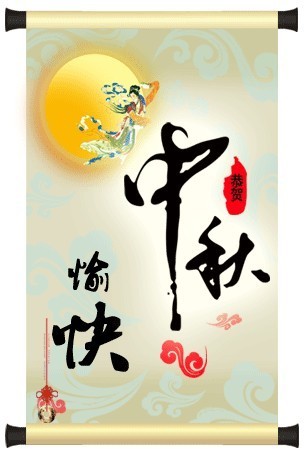 恭贺
中秋
愉快